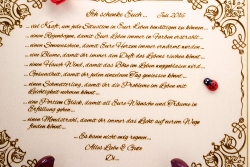 Ich schenke Euch... Juli 2016
...viel Kraft, um jede Situation Eurer Leben bewältigen zu können...
...einen Regenbogen, damit Euer Leben immer in Farben erstrahlt...
...einen Sonnenschein, damit Eure Herzen immer erwärmt werden...
...eine Blume, damit ihr immer den Duft des Lebens riechen könnt...
...einen Hauch Wind, damit das Böse im Leben weggeblasen wird...
...Gesundheit, damit ihr jeden einzelnen Tag geniessen könnt...
...einen Schmetterling, damit ihr die Probleme im Leben mit
Leichtigkeit nehmen könnt...
...eine Portion Glück, damit all Eure Wünsche und Träume in
Erfüllung gehen...
...einen Mondstrahl, damit ihr immer das Licht auf eurem Wege
finden könnt...
Es kann nicht mig regnen...
Alles Liebe & Gute